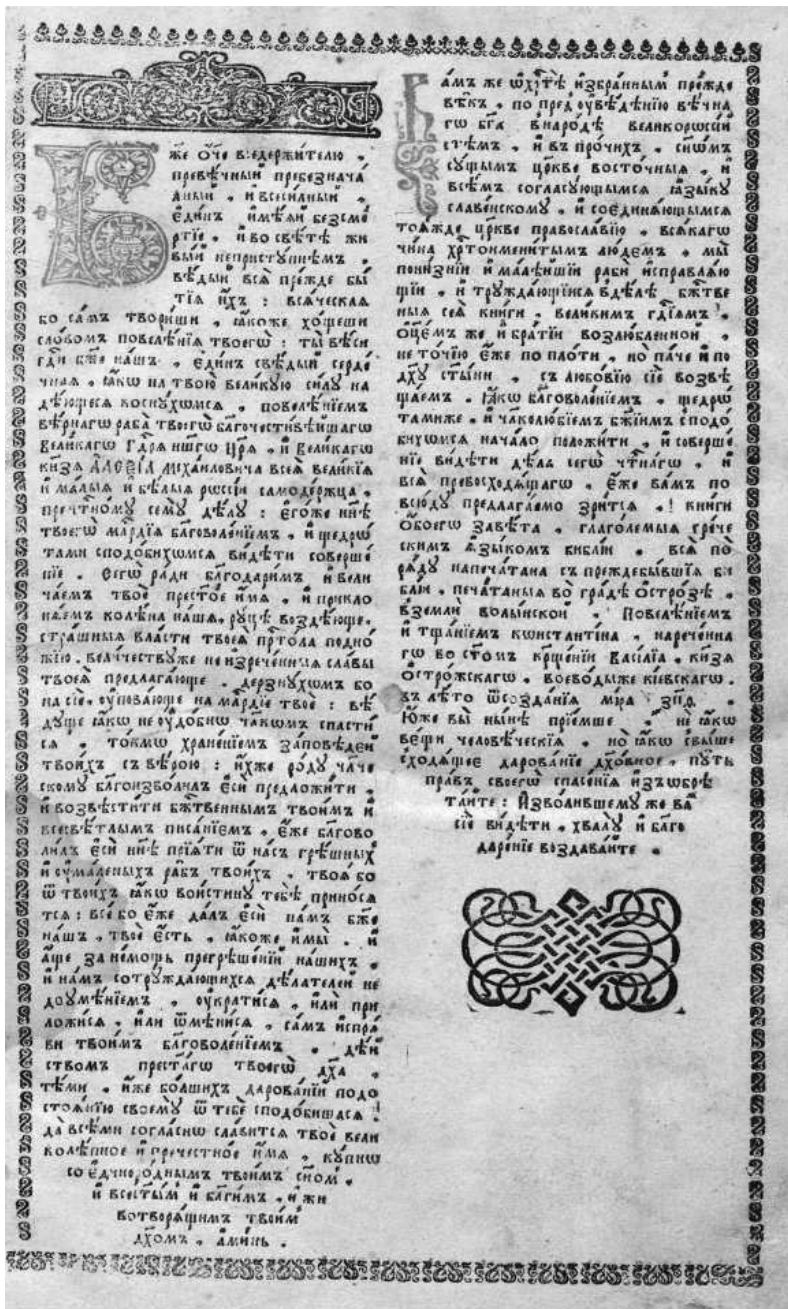 Бж҃е ѻ҆́ч҃е вседержи́телю ,
превѣ́чный пребезнача́
лный , и҆ всеси́лный ,
є҆ди́нъ и҆мѣ́ѧй безсме́
ртїе , и҆ во свѣ́тѣ жи
вы́й непристу́пнѣмъ ,
вѣ́дый всѧ̀ пре́жде бы
тїѧ̀ и҆́хъ : всѧ́ческаѧ
бо са́мъ твори́ши , ꙗ҆́коже хо́щеши
сло́вомъ повелѣ́нїѧ твоегѡ̀ : ты̀ вѣ́си
гд҇и бж҃е на́шъ , є҆ди́нъ свѣ́дый серде́
чнаѧ , ꙗ҆́кѡ на твою̀ вели́кую си́лу на
дѣ́ющесѧ косну́хомсѧ , повелѣ́нїемъ
вѣ́рнагѡ раба̀ твоегѡ̀ бл҃гочести́вѣйшагѡ
вели́кагѡ гдⷭ҇рѧ на́шегѡ цр҃ѧ̀ , и҆ вели́кагѡ
кн҃зѧ Алеѯі́ѧ Міха́иловича всеѧ̀ вели́кїѧ
и҆ ма́лыѧ и҆ бѣ́лыѧ рѡссі́и самоде́ржца ,
пречⷭ҇тному сему̀ дѣ́лу : є҆го́же нн҃ѣ
твоегѡ̀ млⷭ҇рдїѧ бл҃говоле́нїемъ , и҆ щедрѡ́
тами сподо́бихомсѧ ви́дѣти соверше́
нїе . Сегѡ̀ ра́ди бл҃годари́мъ и҆ вели
ча́емъ твоѐ престⷪ҇е и҆́мѧ , и҆ прикло
нѧ́емъ колѣ́на на́ша , ру́цѣ воздѣ́юще ,
стра́шныѧ вла́сти твоеѧ̀ прⷭ҇то́ла подно́
жїю , вели́чествуже не и҆зрече́нныѧ сла́вы
твоеѧ̀ предлага́юще . дерзну́хомъ бо
на сїѐ , ѹ҆пова́юще на млⷭ҇рдїе твоѐ : вѣ́
дуще ꙗ҆́кѡ не ѹ҆до́бнѡ чл҃кѡмъ спасти́
сѧ , то́кмѡ хране́нїемъ за́повѣдей
твои́хъ съ вѣ́рою : и҆́хже ро́ду чл҃че
скому бл҃гоизво́лилъ є҆сѝ предложи́ти ,
и҆ возвѣсти́ти бж҃твеннымъ твои́мъ и҆
всесвѣ́тлымъ писа́нїемъ , є҆́же бл҃гово
ли́лъ є҆сѝ нн҃ѣ прїѧ́ти ѿ на́съ грѣ́шныхъ
и҆ ѹ҆ма́леныхъ ра́бъ твои́хъ , твоѧ̀ бо
ѿ твои́хъ ꙗ҆́кѡ вои́стину тебѣ̀ прино́сѧ
тсѧ : всѐ бо є҆́же да́лъ є҆сѝ на́мъ бж҃е
на́шъ , твоѐ є҆́сть , ꙗ҆́коже и҆ мы̀ . и҆
а҆́ще за не́мощь прегрѣше́нїй на́шихъ ,
и҆ на́мъ сотружда́ющихсѧ дѣ́лателей не
доумѣ́нїемъ , ѹ҆кра́тисѧ , и҆лѝ при
ложи́сѧ , и҆лѝ ѿмѣни́сѧ , са́мъ и҆спра́
ви твои́мъ бл҃говоле́нїемъ , дѣ́й
ствомъ престⷢ҇ѡ твоегѡ̀ дх҃а ,
тѣ́ми , и҆̀же бо́лшихъ дарова́нїй подо
стоѧ́нїю своемꙋ̀ ѿ тебѐ сподо́бишасѧ !
да всѣ́ми согла́снѡ сла́витсѧ твоѐ вели
колѣ́пное и҆ пречестно́е и҆́мѧ , ку́пнѡ
со є҆дноро́днымъ твои́мъ сн҃омъ ,
и҆ всест҃ы́мъ и҆ бл҃ги́мъ , и҆ жи
вотворѧ́щимъ твои́мъ
дх҃омъ , а҆ми́нь .
Ва́мъ же ѡ҆ хрⷭ҇тѣ̀ и҆збра́ннымъ пре́жде
вѣ́къ , по пред̾ѹвѣ́дѣнїю вѣ́чна
гѡ бг҃а в̾наро́дѣ великорѡссі́й
стѣмъ , и҆ въ про́чихъ , сн҃ѡмъ
су́щымъ цр҃кве восто́чныѧ , и҆
всѣ́мъ согласу́ющымсѧ ꙗ҆зы́ку
славе́нскому , и҆ соединѧ́ющымсѧ
тоѧ́жде цр҃кве правосла́вїю , всѧ́кагѡ
чи́на хрⷭ҇тоимени́тымъ лю́демъ , мы̀
пони́знїи и҆ малѣ́йшїи рабѝ и҆справлѧ́ю
щїи , и҆ тружда́ющїисѧ в̾дѣ́лѣ бж҃тве
ныѧ сеѧ̀ кни́ги , вели́кимъ гдⷭ҇їѧмъ ,
ѻ҆ц҃е́мъ же и҆ бра́тїи возлю́бленной ,
не то́чїю є҆́же по пло́ти , но па́че и҆ по
дх҃у ст҃ы́ни , съ любо́вїю сїѐ возвѣ
ща́емъ , Ꙗ҆́кѡ бл҃говоле́нїемъ , щедрѡ́
тамиже , и҆ чл҃колю́бїемъ бж҃їимъ сподо́
бихомсѧ нача́ло положи́ти , и҆ соверше́
нїе ви́дѣти дѣ́ла сегѡ̀ чⷭ҇тна́гѡ , и҆
всѧ̀ превосходѧ́щагѡ , є҆́же ва́мъ по
всю́ду предлага́емо зри́тсѧ , ! кни́ги
ѻ҆бо́егѡ завѣ́та , глаго́лемыѧ гре́че
скимъ ꙗ҆зы́комъ библі́и , всѧ̀ по
рѧ́ду напеча́тана съ преждебы́вшїѧ би
блі́и , печа́таныѧ во гра́дѣ ѻ҆стро́зѣ ,
в̾землѝ волы́нской , Повелѣ́нїемъ
и҆ тща́нїемъ кѡнстанті́на , нарече́нна
гѡ во ст҃о́мъ крⷳ҇ще́нїи васі́лїа , кн҃зѧ
ѻ҆стро́жскагѡ , воево́дыже кі́евскагѡ .
въ лѣ́то ѿ созда́нїѧ мі́ра ҂зп҃ѳ ,
Ю҆́же вы̀ ны́нѣ прїе́мше , не ꙗ҆́кѡ
ве́щи человѣ́ческїѧ , но ꙗ҆́кѡ свы́ше
сходѧ́щее дарова́нїе дх҃о́вное , пу́ть
пра́въ своегѡ̀ спасе́нїѧ и҆з̾ѡбрѣ
та́йте : И҆зво́лившему же ва́
сїѐ ви́дѣти , хвалу̀ и҆ бл҃го
даре́нїе воздава́йте .